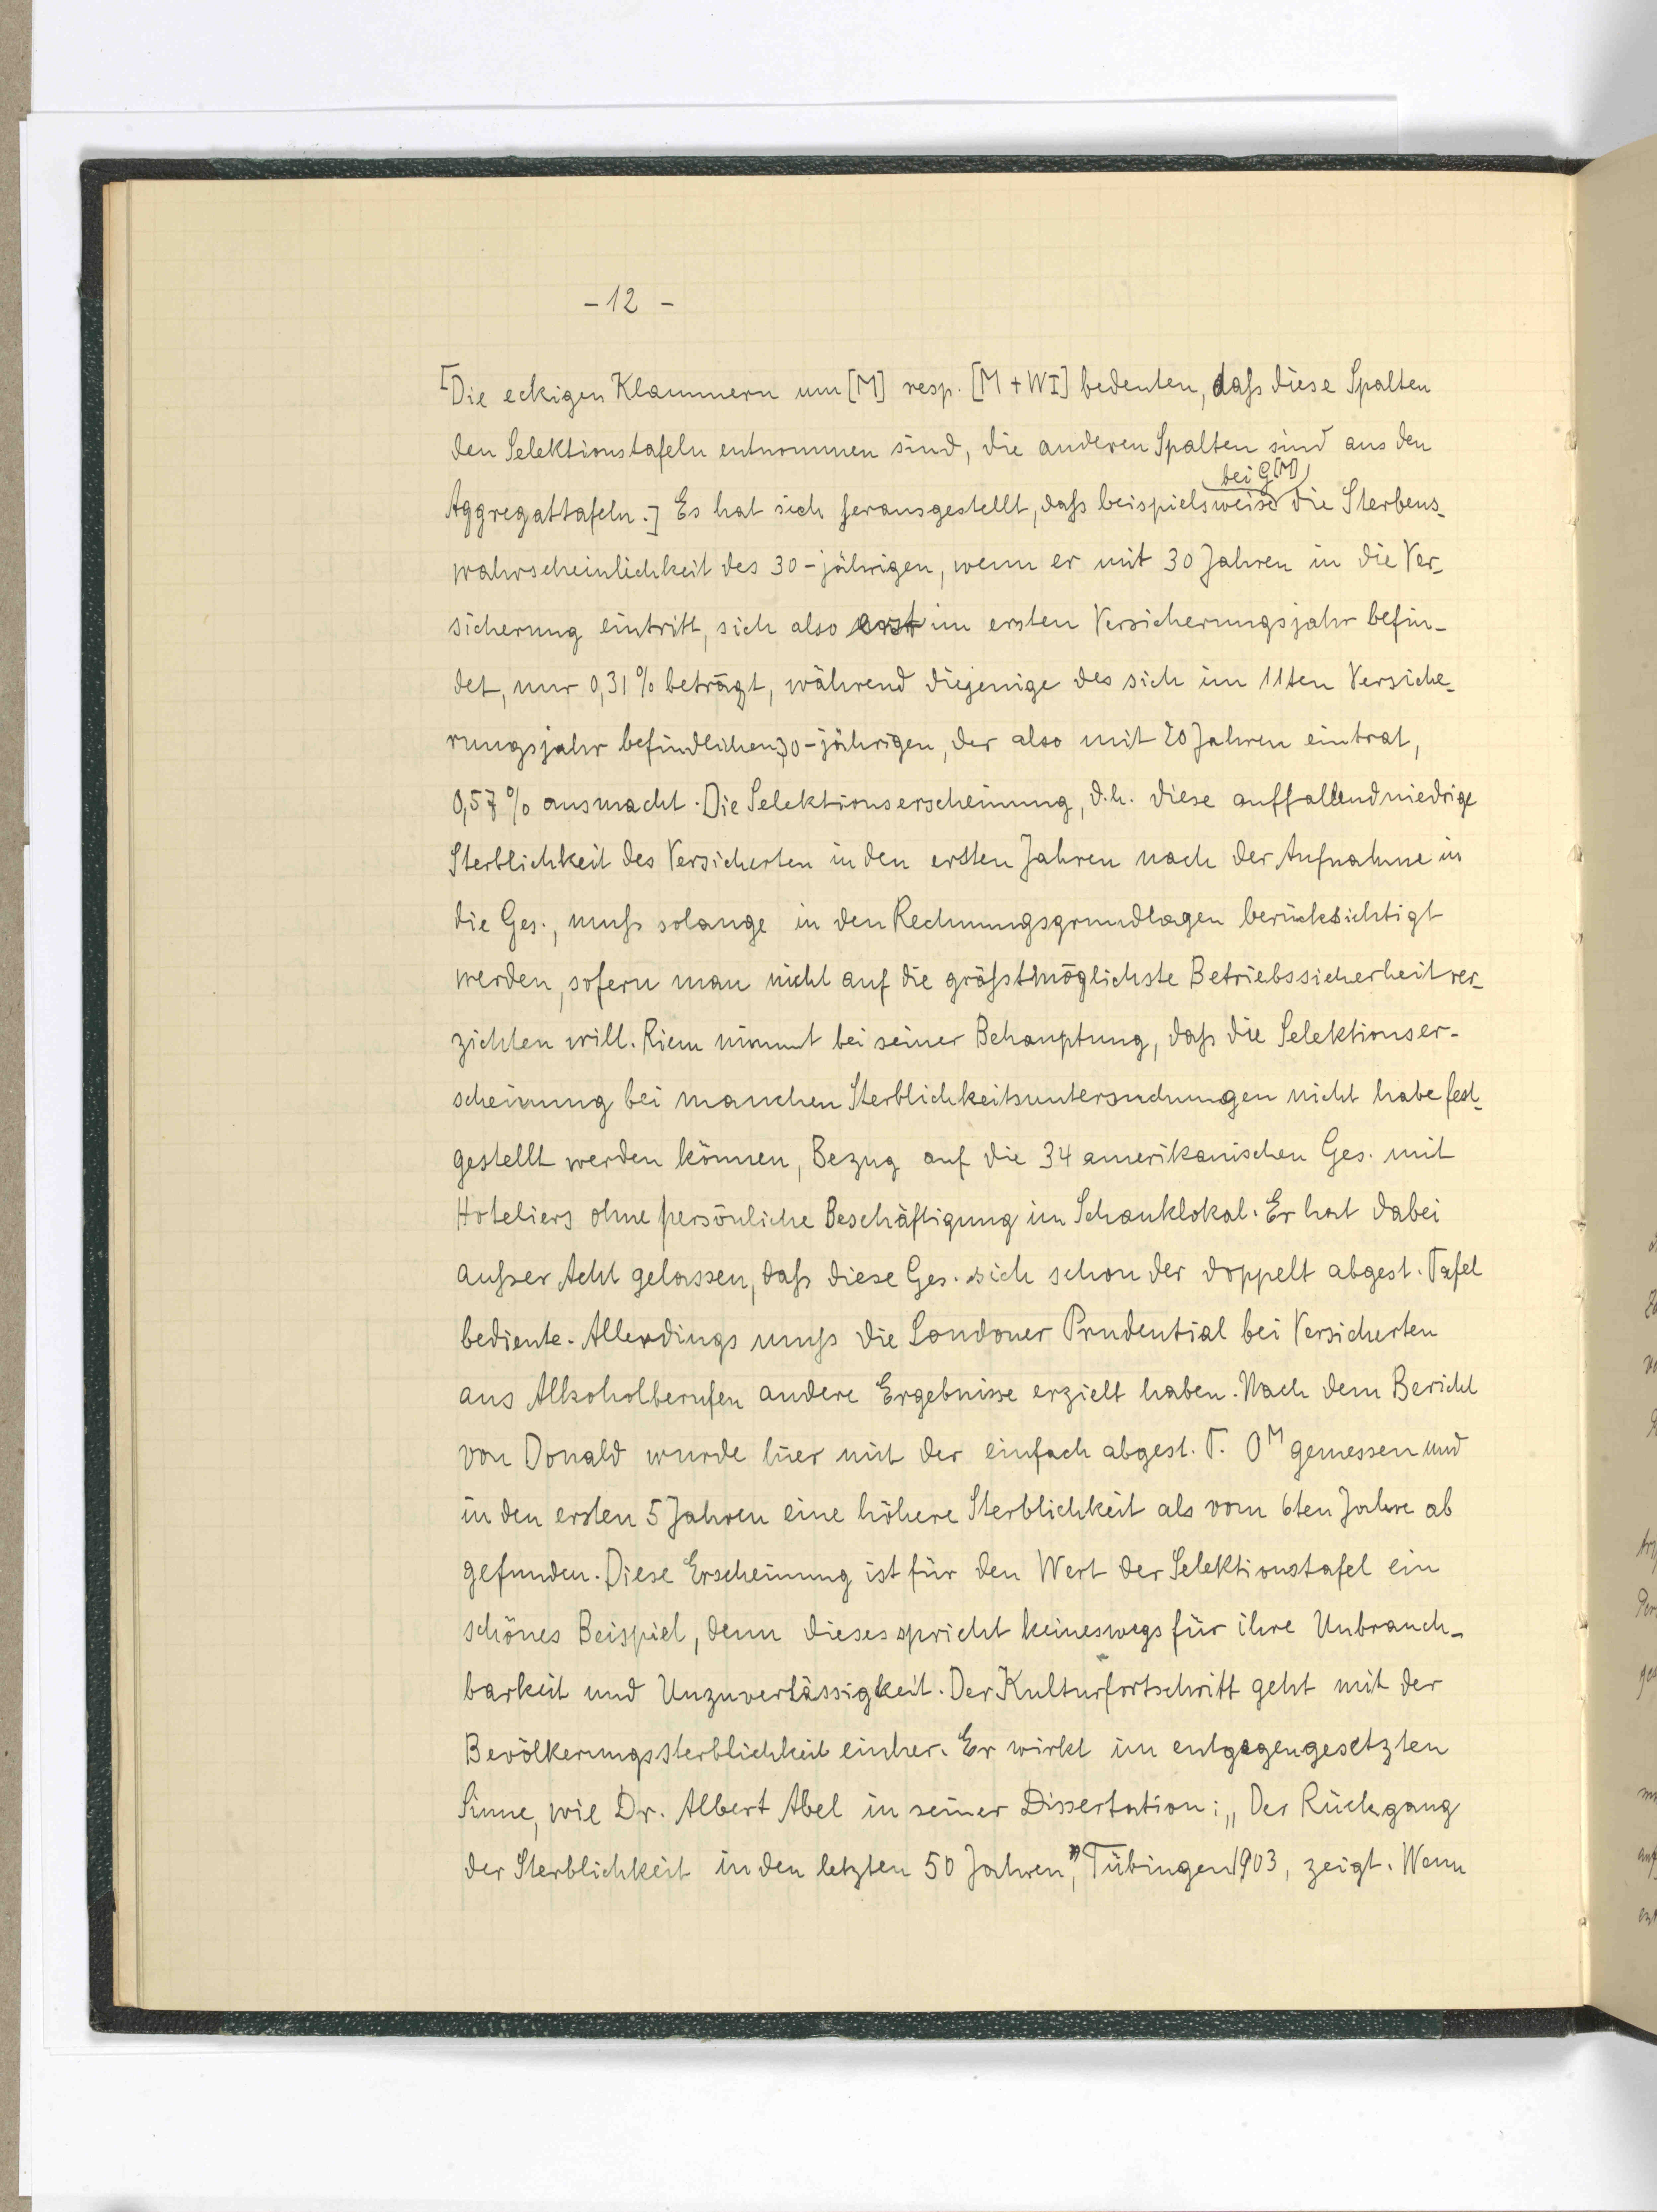 - 12 -
[Die eckigen Klammern um [M] resp. [M + WI] bedeuten, daß diese Spalten
den Selektionstafeln entnommen sind, die anderen Spalten sind aus den
bei G[M]
Aggregattafeln.] Es hat sich herausgestellt, daß beispielsweise die Sterbens-
wahrscheinlichkeit des 30-jährigen, wenn er mit 30 Jahren in die Ver-
sicherung eintritt, sich also erst im ersten Versicherungsjahr befin-
det, nur 0,31% beträgt, während diejenige des sich im 11ten Versiche-
rungsjahr befindlichen 30-jährigen, der also mit 20 Jahren eintrat,
0,57% ausmacht. Die Selektionserscheinung, d.h. diese auffallend niedrige
Sterblichkeit des Versicherten in den ersten Jahren nach der Aufnahme in
die Ges., muß solange in den Rechnungsgrundlagen berücksichtigt
werden, sofern man nicht auf die größtmöglichste Betriebssicherheit ver-
zichten will. Riem nimmt bei seiner Behauptung, daß die Selektionser-
scheinung bei manchen Sterblichkeitsuntersuchungen nicht habe fest-
gestellt werden können, Bezug auf die 34 amerikanischen Ges. mit
Hoteliers ohne persönliche Beschäftigung im Schanklokal. Er hat dabei
außer Acht gelassen, daß diese Ges. sich schon der doppelt abgest. Tafel
bediente. Allerdings muß die Londoner Prudential bei Versicherten
aus Alkoholberufen andere Ergebnisse erzielt haben. Nach dem Bericht
von Donald wurde hier mit der einfach abgest. T. O^M gemessen und
in den ersten 5 Jahren eine höhere Sterblichkeit als vom 6ten Jahre ab
gefunden. Diese Erscheinung ist für den Wert der Selektionstafel ein
schönes Beispiel, denn dieses spricht keineswegs für ihre Unbrauch-
barkeit und Unzuverlässigkeit. Der Kulturfortschritt geht mit der
Bevölkerungssterblichkeit einher. Er wirkt im entgegengesetzten
Sinne, wie Dr. Albert Abel in seiner Dissertation: „Der Rückgang
der Sterblichkeit in den letzten 50 Jahren", Tübingen 1903, zeigt. Wenn